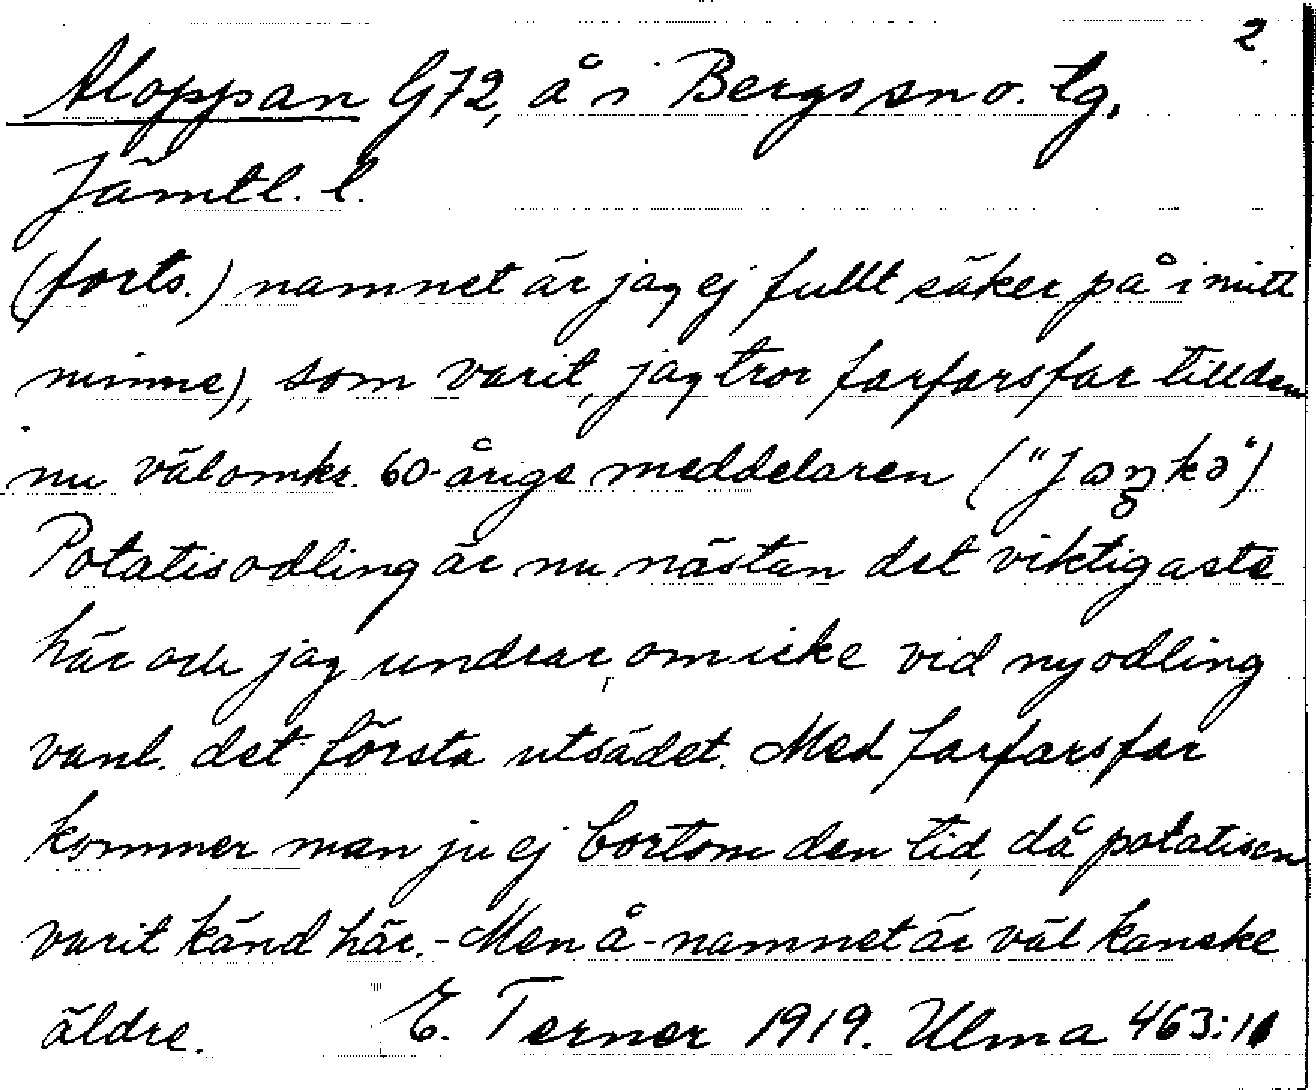 2
Aloppan G72, å i Bergs sn o. tg,
Jämtl. l.
(forts.) namnet är jag ej fullt säker på i mitt
minne), som varit, jag tror farfarsfar till den
nu väl omkr. 60-årige meddelaren ("Jaŋ̥kə")
Potatisodling är nu nästan det viktigaste
här och jag undrar, om icke vid nyodling
vanl. det första utsädet. Med farfarsfar
kommer man ju ej bortom den tid, då potatisen
varit känd här. - Men å-namnet är väl kanske
äldre. E. Terner 1919. Ulma 463:11